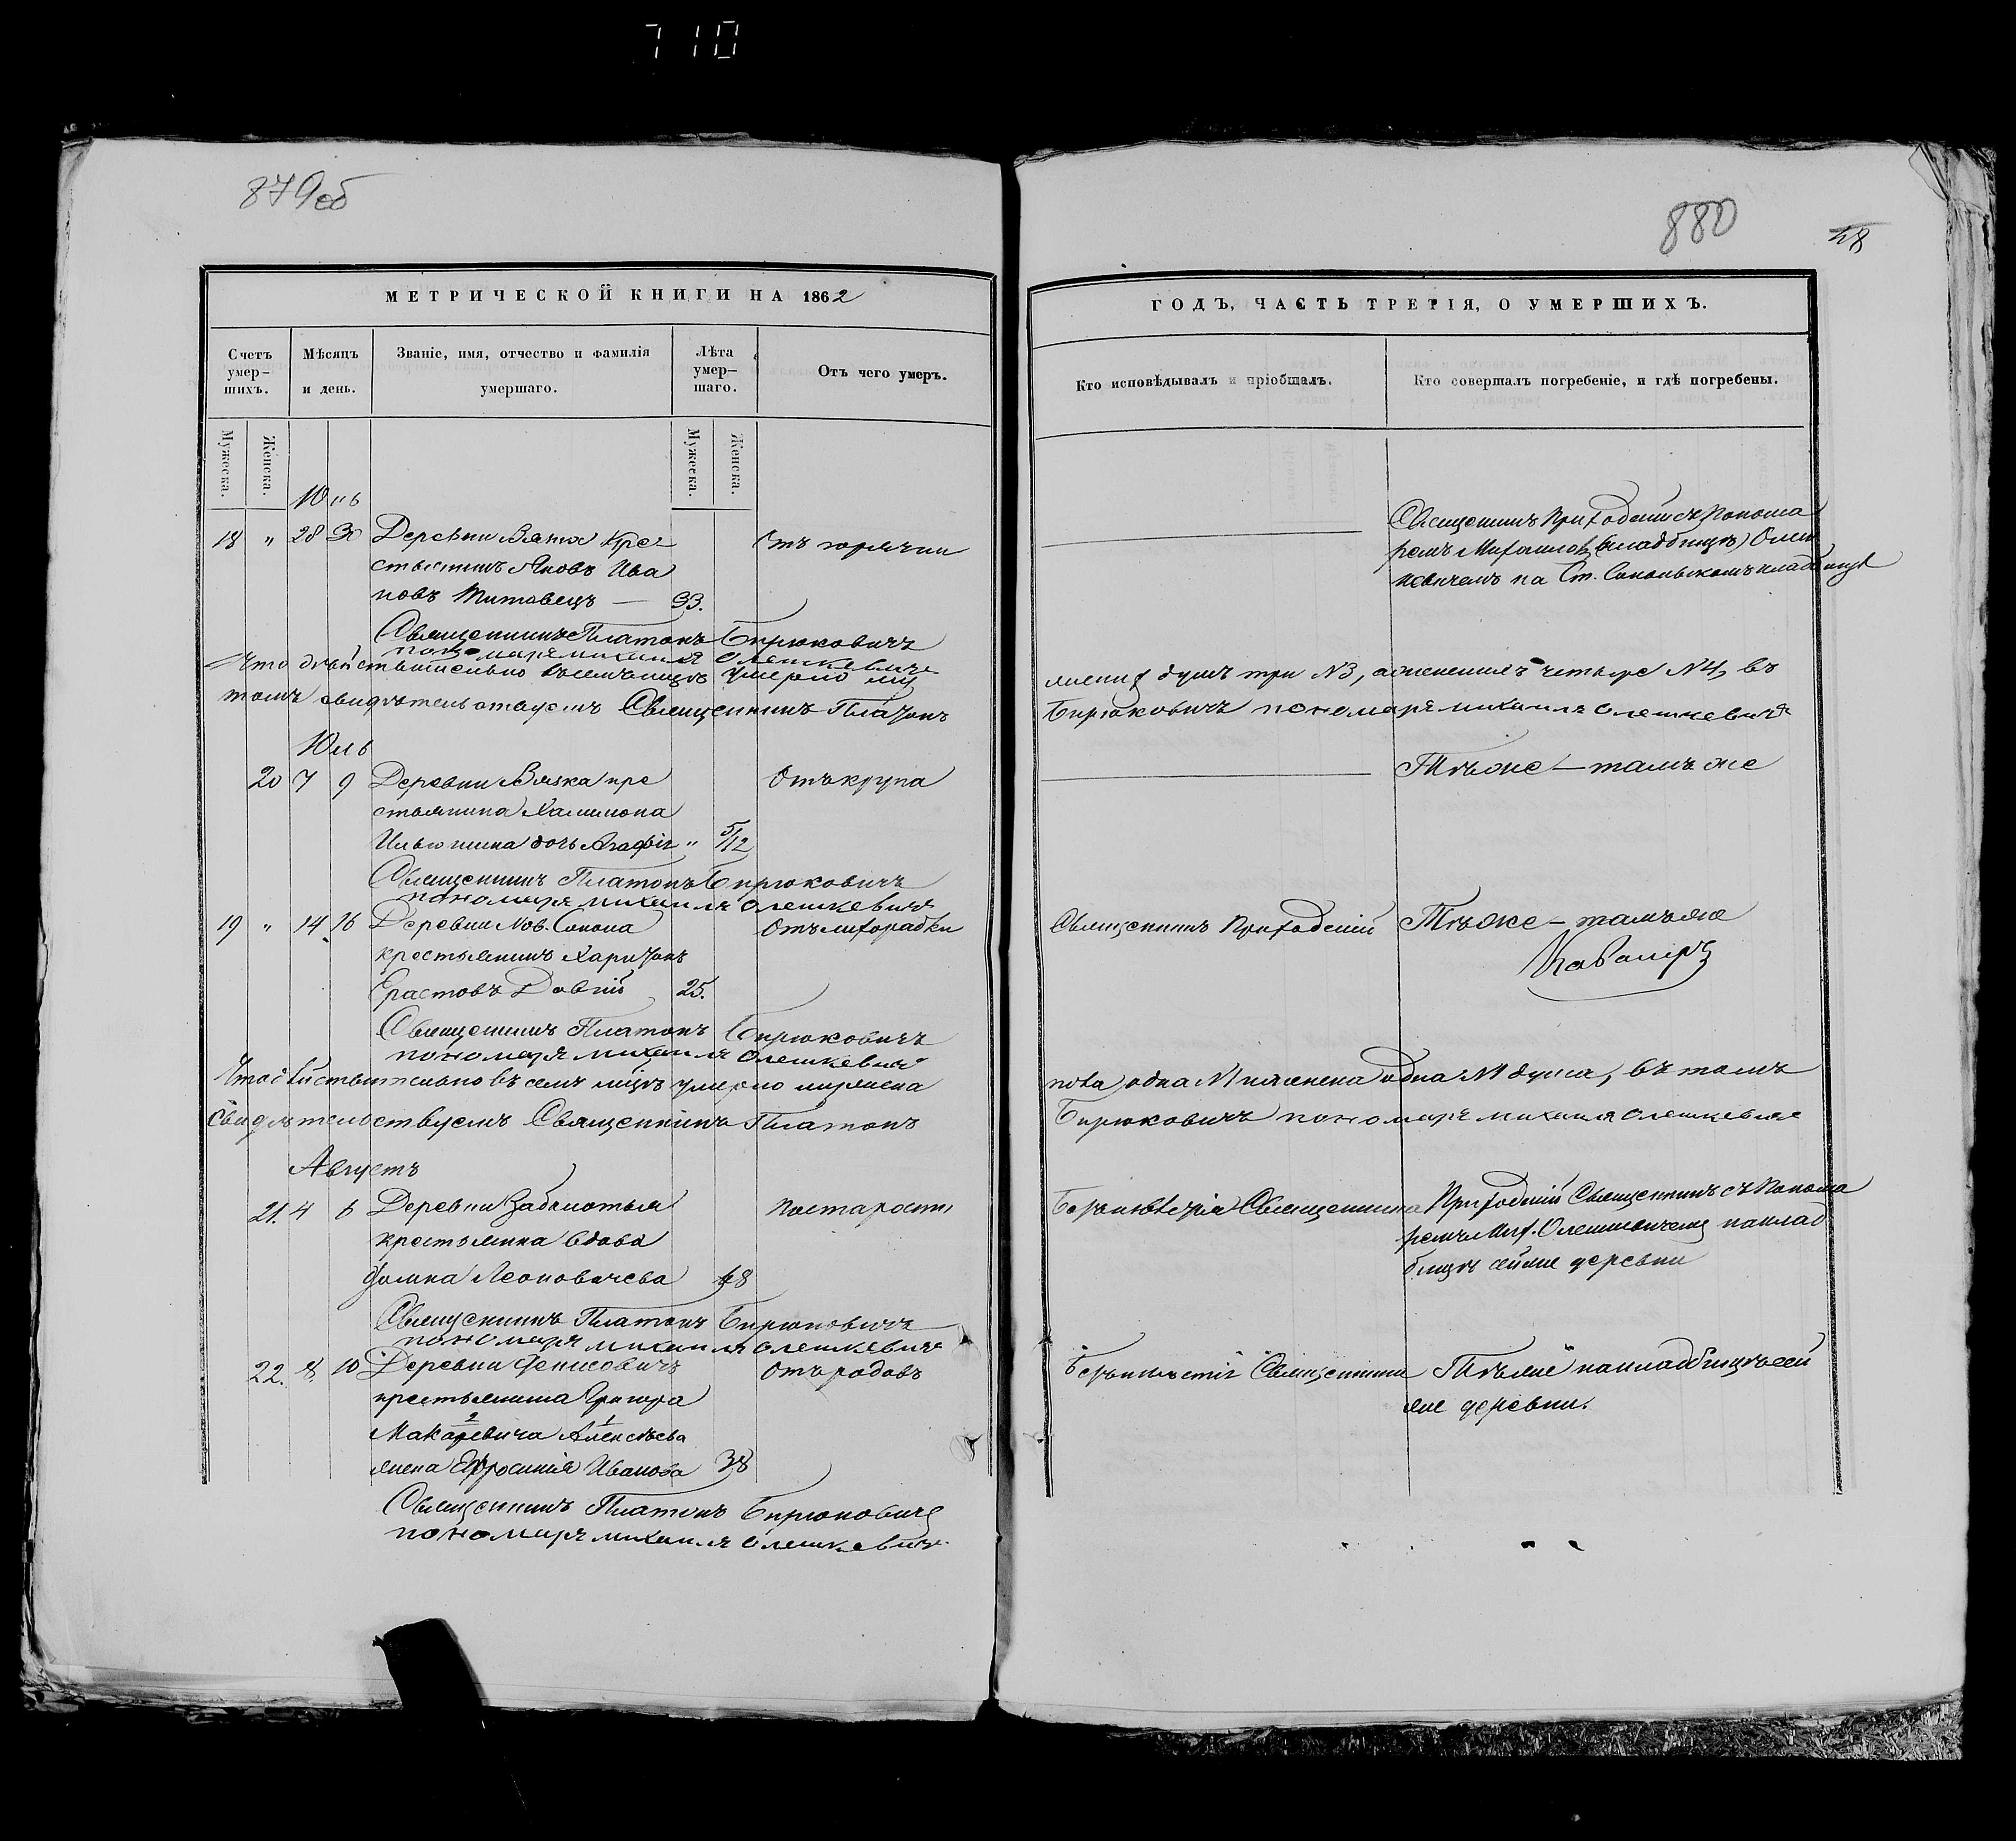 710
879 об
880
48
МЕТРИЧЕСКОЙ КНИГИ НА 1862
ГОДЪ, ЧАСТЬ ТРЕТІЯ, О УМЕРШИХЪ.
Счетъ умер–шихъ.
Мѣсяцъ и день.
Званіе, имя, отчество и фамилія умершаго.
Лѣта умер–шаго.
Отъ чего умеръ.
Кто исповѣдывалъ и пріобщалъ.
Кто совершалъ погребеніе, и гдѣ погребены.
Мужеска. Женска.
Мужеска. Женска.
Юнь
18 " 28 30 Деревни Крес
стьянинъ Яковъ Ива
новъ Титовецъ — 33.
Отъ горячки
Священникъ Приходскій съ Понома
ремъ Михаиломъ Олеш
кевичемъ на Ст. Сокольскомъ кладбищѣ
Священникъ Платонъ Бирюковичъ
пономарь михаилъ Олешкевичъ
Что дѣйствительно въ семъ мѣсяцѣ умерло муж
ескихъ душъ три №3, а женскихъ четыре №4, въ
томъ свидѣтельствуемъ Священникъ Платонъ
Бирюковичъ пономарь михаилъ Олешкевичъ
Юль
20 7 9 Деревни Вязка кре
стьянина
дочь Агафія " 5/12
Отъ крупа
Тѣ же – тамъ же
Священникъ Платонъ Бирюковичъ
пономарь михаилъ Олешкевичъ
19 " 14 16 Деревни Нов. Сокола
крестьянинъ Харитонъ
Ерастовъ Довгій 25.
Отъ лихорадки
Священникъ Приходскій
Тѣ же – тамъ же
Священникъ Платонъ Бирюковичъ
пономарь михаилъ Олешкевичъ
Что дѣйствительно въ семъ мѣсяцѣ умерло
одна №1 и женска одна №1 душа, въ томъ
свидѣтельствуемъ Священникъ Платонъ
Бирюковичъ пономарь михаилъ Олешкевичъ
Августъ
21. 4 6 Деревни Заболотья
крестьянка вдова
Леоновичева 48
Отъ старости
Священника
Приходскій Священникъ съ Понома
ремъ Мих. Олешкевичемъ на клад
бищѣ сей же деревни
Священникъ Платонъ Бирюковичъ
пономарь михаилъ Олешкевичъ
22. 8. 10 Деревни Денисовичъ
крестьянина Григорія
Макаревича Алексѣева
жена Ефросинія Иванова 38
Отъ родовъ
Священника
Тѣ же на кладбищѣ сей
же деревни.
Священникъ Платонъ Бирюковичъ
пономарь михаилъ Олешкевичъ